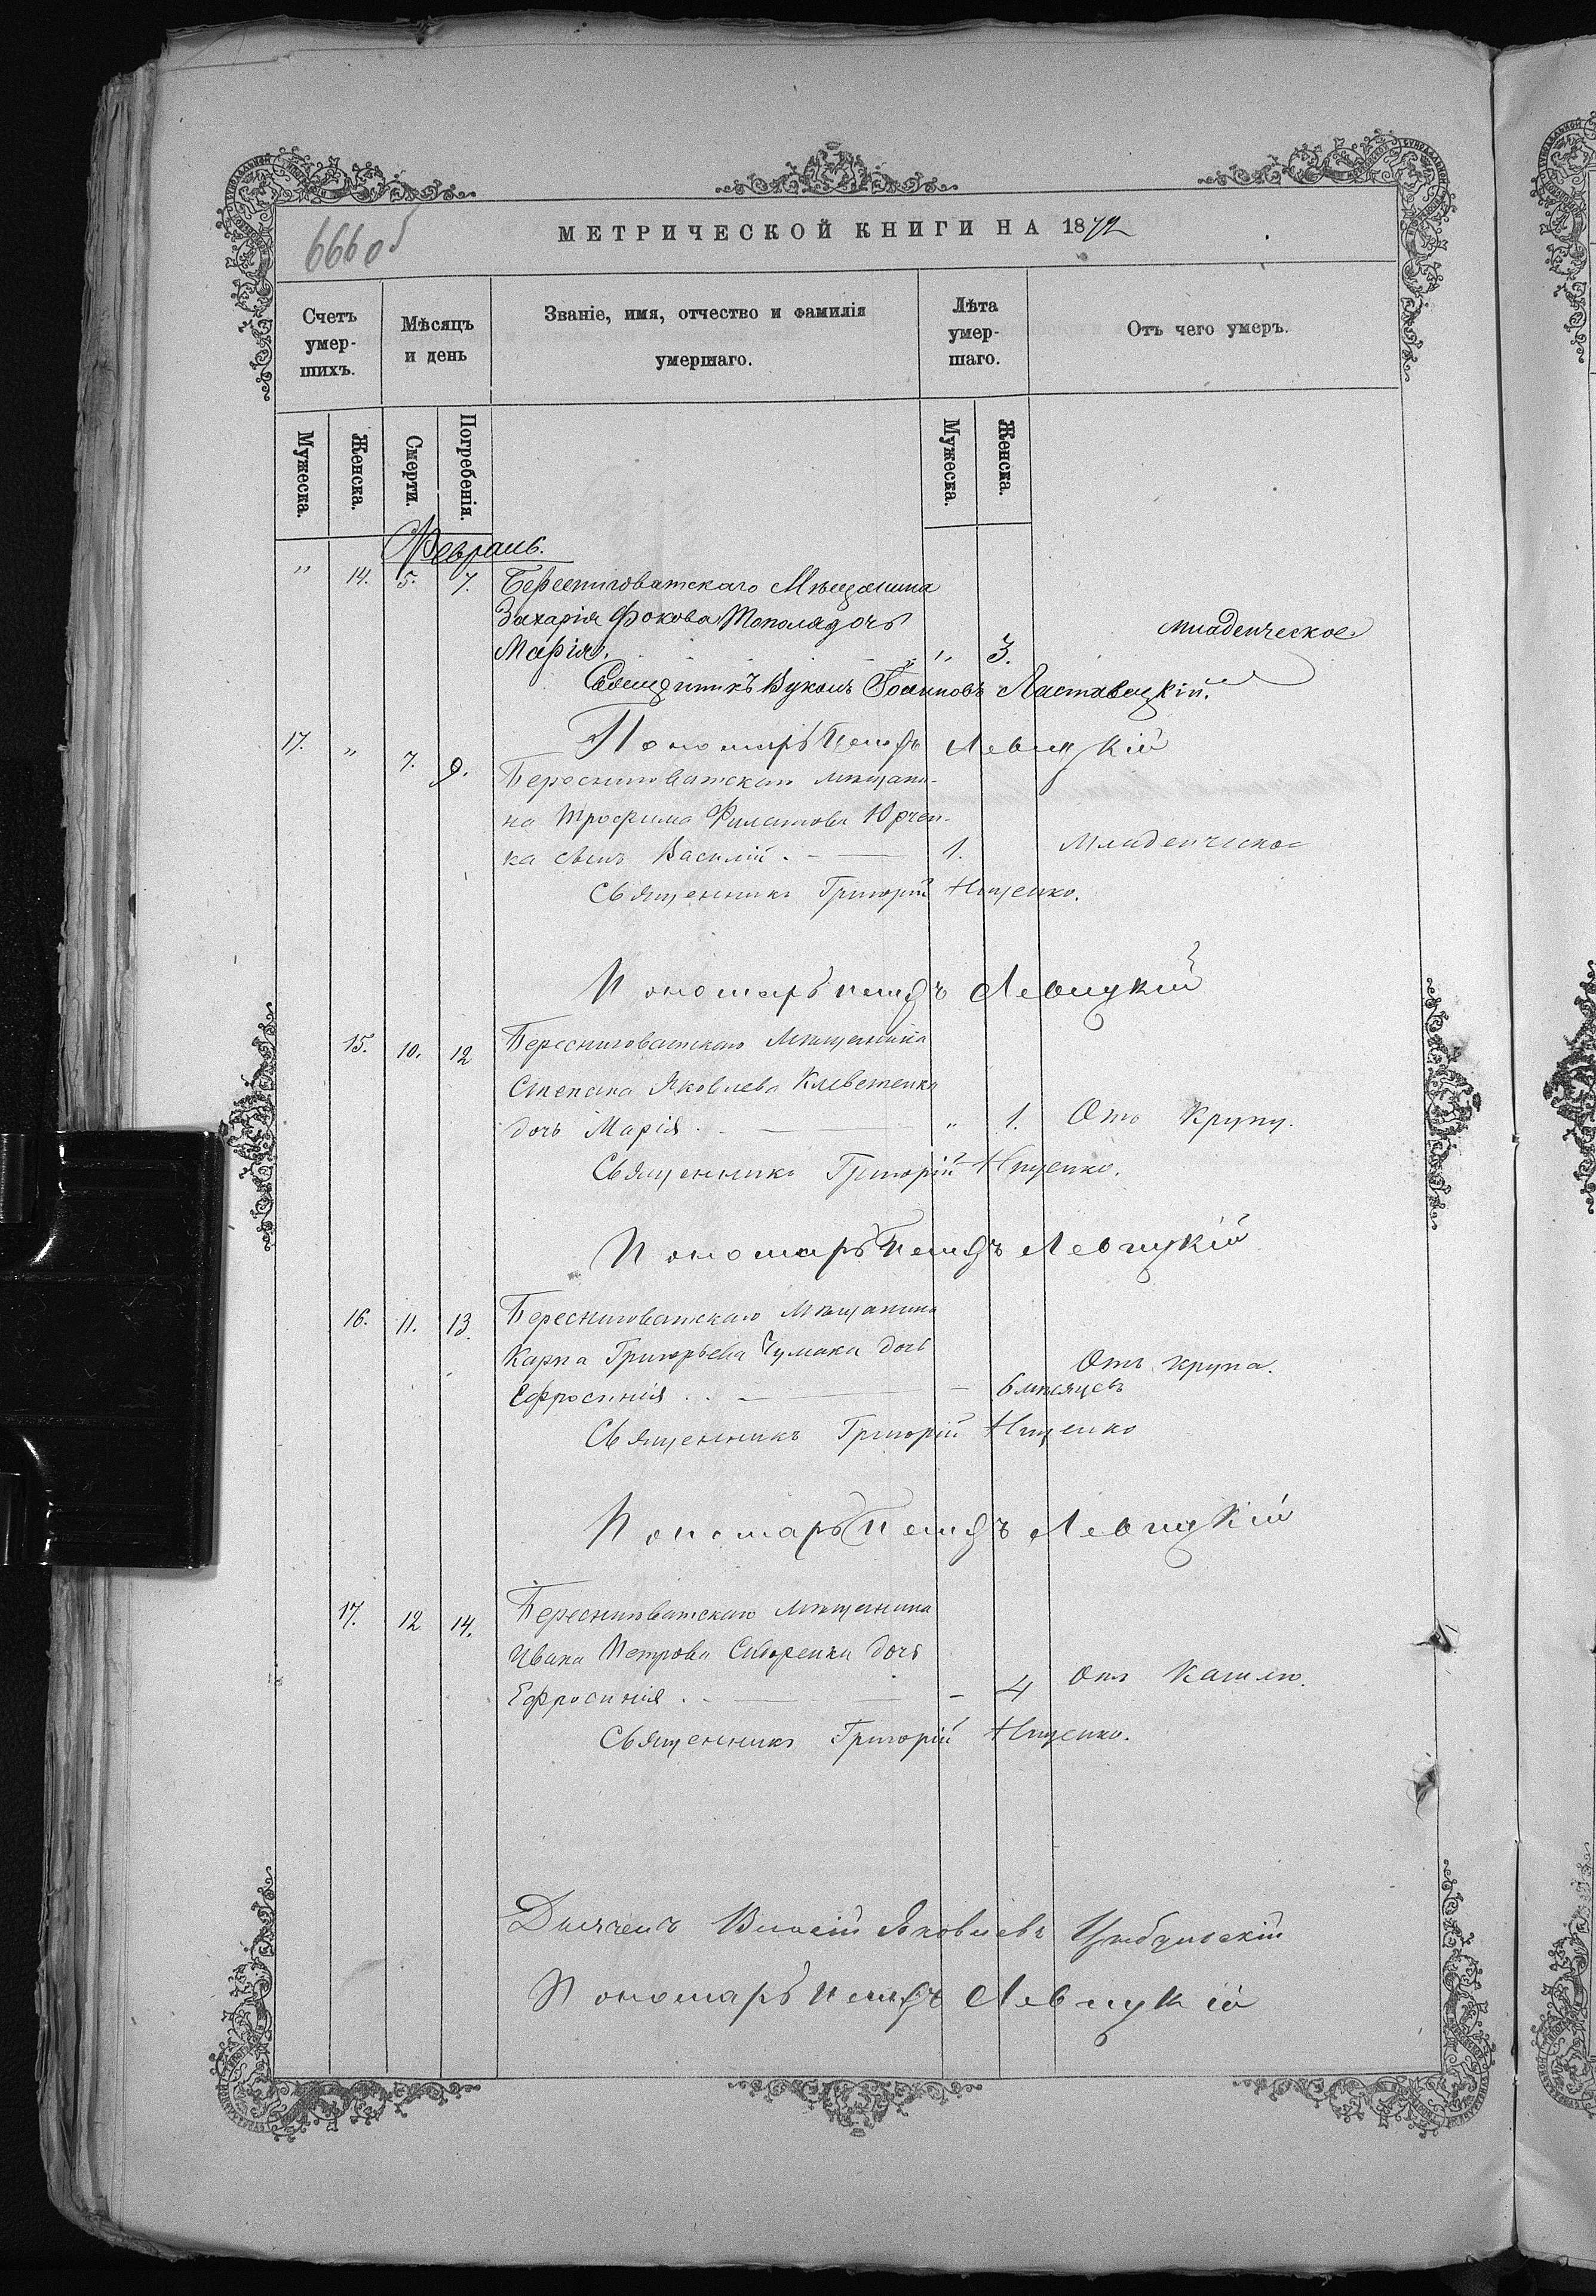 666 об
МЕТРИЧЕСКОЙ КНИГИ НА 1872
Счетъ умер-шихъ.
Мѣсяцъ и день
Званіе, имя, отчество и фамилія умершаго.
Лѣта умер-шаго.
Отъ чего умеръ.
Мужеска.
Женска.
Смерти.
Погребенія.
Мужеска.
Женска.
Февраль.
" 14. 5. 7. Береснѣговатскаго Мѣщанина
Захарія Фокова Тополя дочь
Марія. " 3. младенческое
Священникъ Вуколъ Іоанновъ Ластавецкій.
Пономарь Петръ Левицкій
17. " 7. 9. Береснѣговатскаго мѣщани-
на Трофима Филатова Юрчен-
ка сынъ Василій. — 1. Младенческое
Священникъ Григорій Ищенко.
Пономарь Петръ Левицкій
15. 10. 12 Береснѣговатскаго Мѣщанина
Степана Яковлева Клеветенка
дочь Марія. — " 1. Отъ Крупу.
Священникъ Григорій Ищенко.
Пономарь Петръ Левицкій
16. 11. 13. Береснѣговатскаго Мѣщанина
Карпа Григорьева Чумака дочь
Ефросинія . . — 6 мѣсяцевъ Отъ крупа.
Священникъ Григорій Ищенко
Пономарь Петръ Левицкій
17. 12 14. Береснѣговатскаго мѣщанина
Ивана Петрова дочь
Ефросинія . . — 4 Отъ Кашлю.
Священникъ Григорій Ищенко.
Дьячекъ Яковлевъ
Пономарь Петръ Левицкій